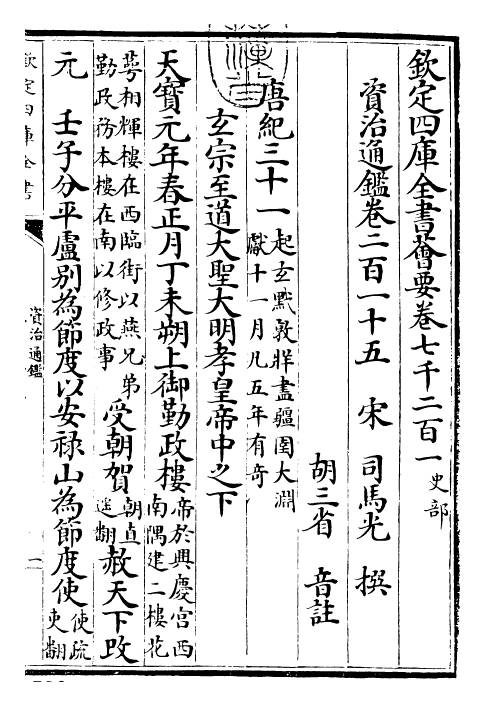 欽定四庫全書薈要卷七千二百一 史部
資治通鑑卷二百一十五 宋 司馬光 撰
胡三省 音註
唐紀三十一 起玄黓敦牂盡彊圉大淵獻十一月凡五年有奇
玄宗至道大聖大明孝皇帝中之下
天寶元年春正月丁未朔上御勤政樓 帝於興慶宮西南隅建二樓花
萼相輝樓在西臨街以燕兄弟勤政務本樓在南以修政事 受朝賀 朝直遙翻 赦天下改
元 壬子分平盧別為節度以安祿山為節度使 使疏吏翻
欽定四庫全書
資治通鑑
一